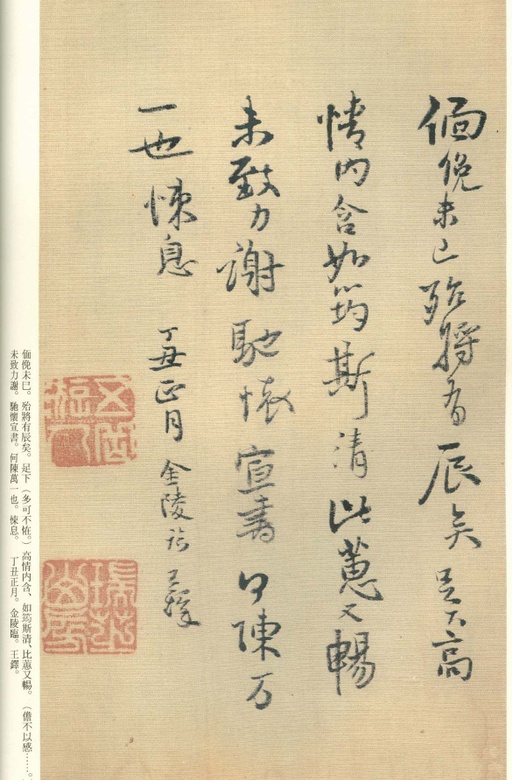 僶俛未已殆將有辰矣足下高
情内含如筠斯清比蕙又暢
未致力謝馳懷宣書何陳万
一也悚息 丁丑正月金陵臨王鐸
僶俛未已。殆將有辰矣。足下(多可不恠。)高情内含、如筠斯清、比蕙又暢。(儋不以感……。)
未致力謝。馳懷宣書。何陳萬一也。悚息。 丁丑正月。金陵臨。王鐸。